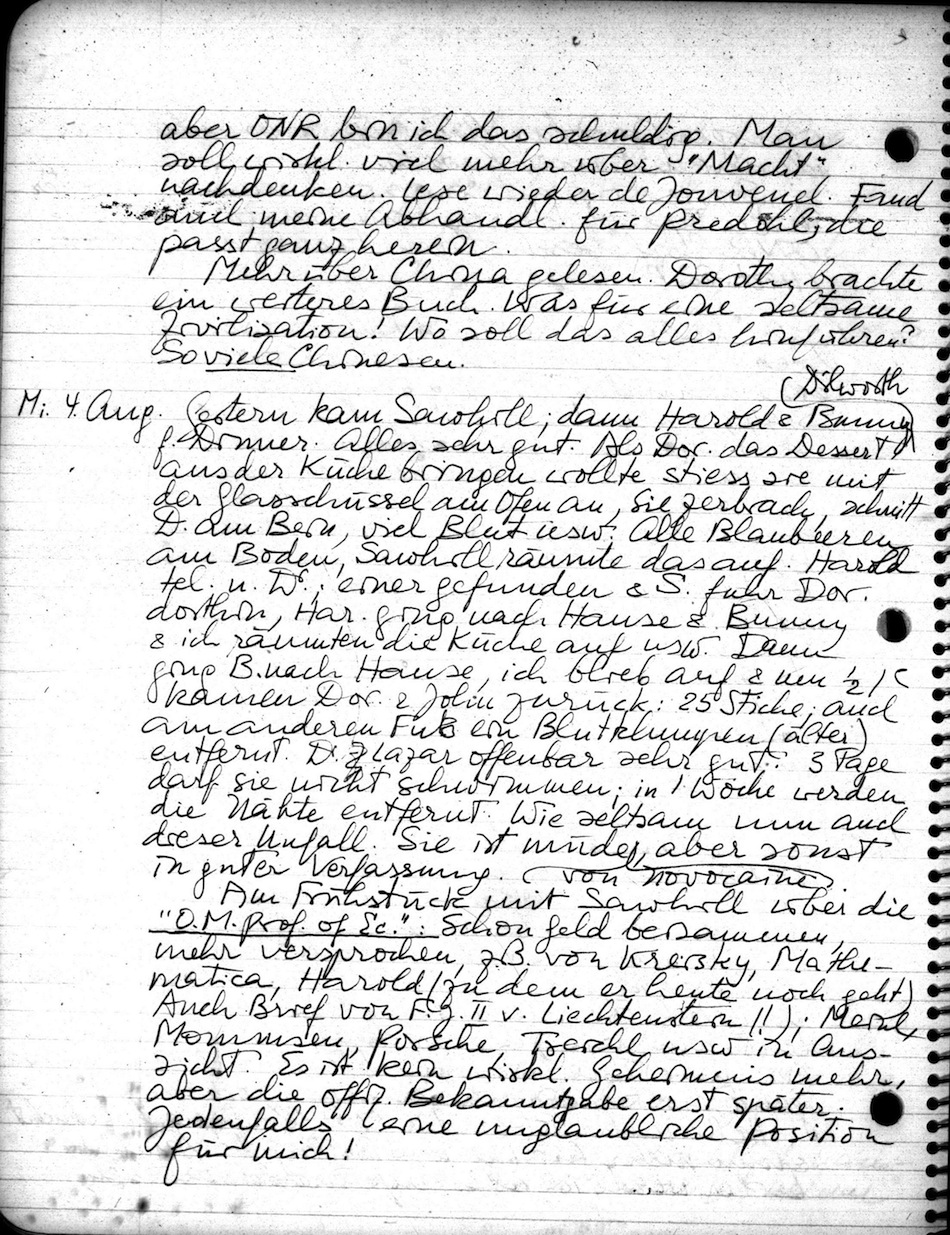 aber ONR bin ich das schuldig. Man
soll wirkl. viel mehr über "Macht"
nachdenken. Lese wieder de Jouvenel. Fand
und meine Abhandl. für Predöhl, die
passt ganz herein.
Mehr über China gelesen. Dorothy brachte
ein weiteres Buch. Was für eine seltsame
Zivilisation! Wo soll das alles hinführen?
So viele Chinesen.
(Dilworth
Mi. 4. Aug. Gestern kam Sawhill; dann Harold & Bunny)
f. Dinner. Alles sehr gut. Als Dor. das Dessert
aus der Küche bringen wollte stiess sie mit
der Glasschüssel am Ofen an, sie zerbrach, schnitt
D. am Bein, viel Blut usw. Alle Blaubeeren
am Boden, Sawhill räumte das auf. Harold
tel. n. Dr.; einer gefunden & S. fuhr Dor.
dorthin, Har. ging nach Hause & Bunny
& ich räumten die Küche auf usw. Dann
ging B. nach Hause, ich blieb auf & um ½ 1<
kamen Dor. & John zurück: 25 Stiche, auch
am anderen Fuß ein Blutklumpen (älter)
entfernt. Dr. Glazar offenbar sehr gut. 3 Tage
darf sie nicht schwimmen; in 1 Woche werden
die Nähte entfernt. Wie seltsam nun auch
dieser Unfall. Sie ist müde, aber sonst
in guter Verfassung. (von Novocaine)
Am Frühstück mit Sawhill über die
"O.M. Prof. of Ec.": Schon Geld beisammen,
mehr versprochen, z.B. von Kreisky, Mathe-
matica, Harold (zu dem er heute noch geht)
Auch Brief von F.J. II v. Liechtenstein (!); Merul,
Mommsen, Porsche, Treichl usw in Aus-
sicht. Es ist kein wirkl. Geheimnis mehr,
aber die offiz. Bekanntgabe erst später.
Jedenfalls eine unglaubliche Position
für mich!